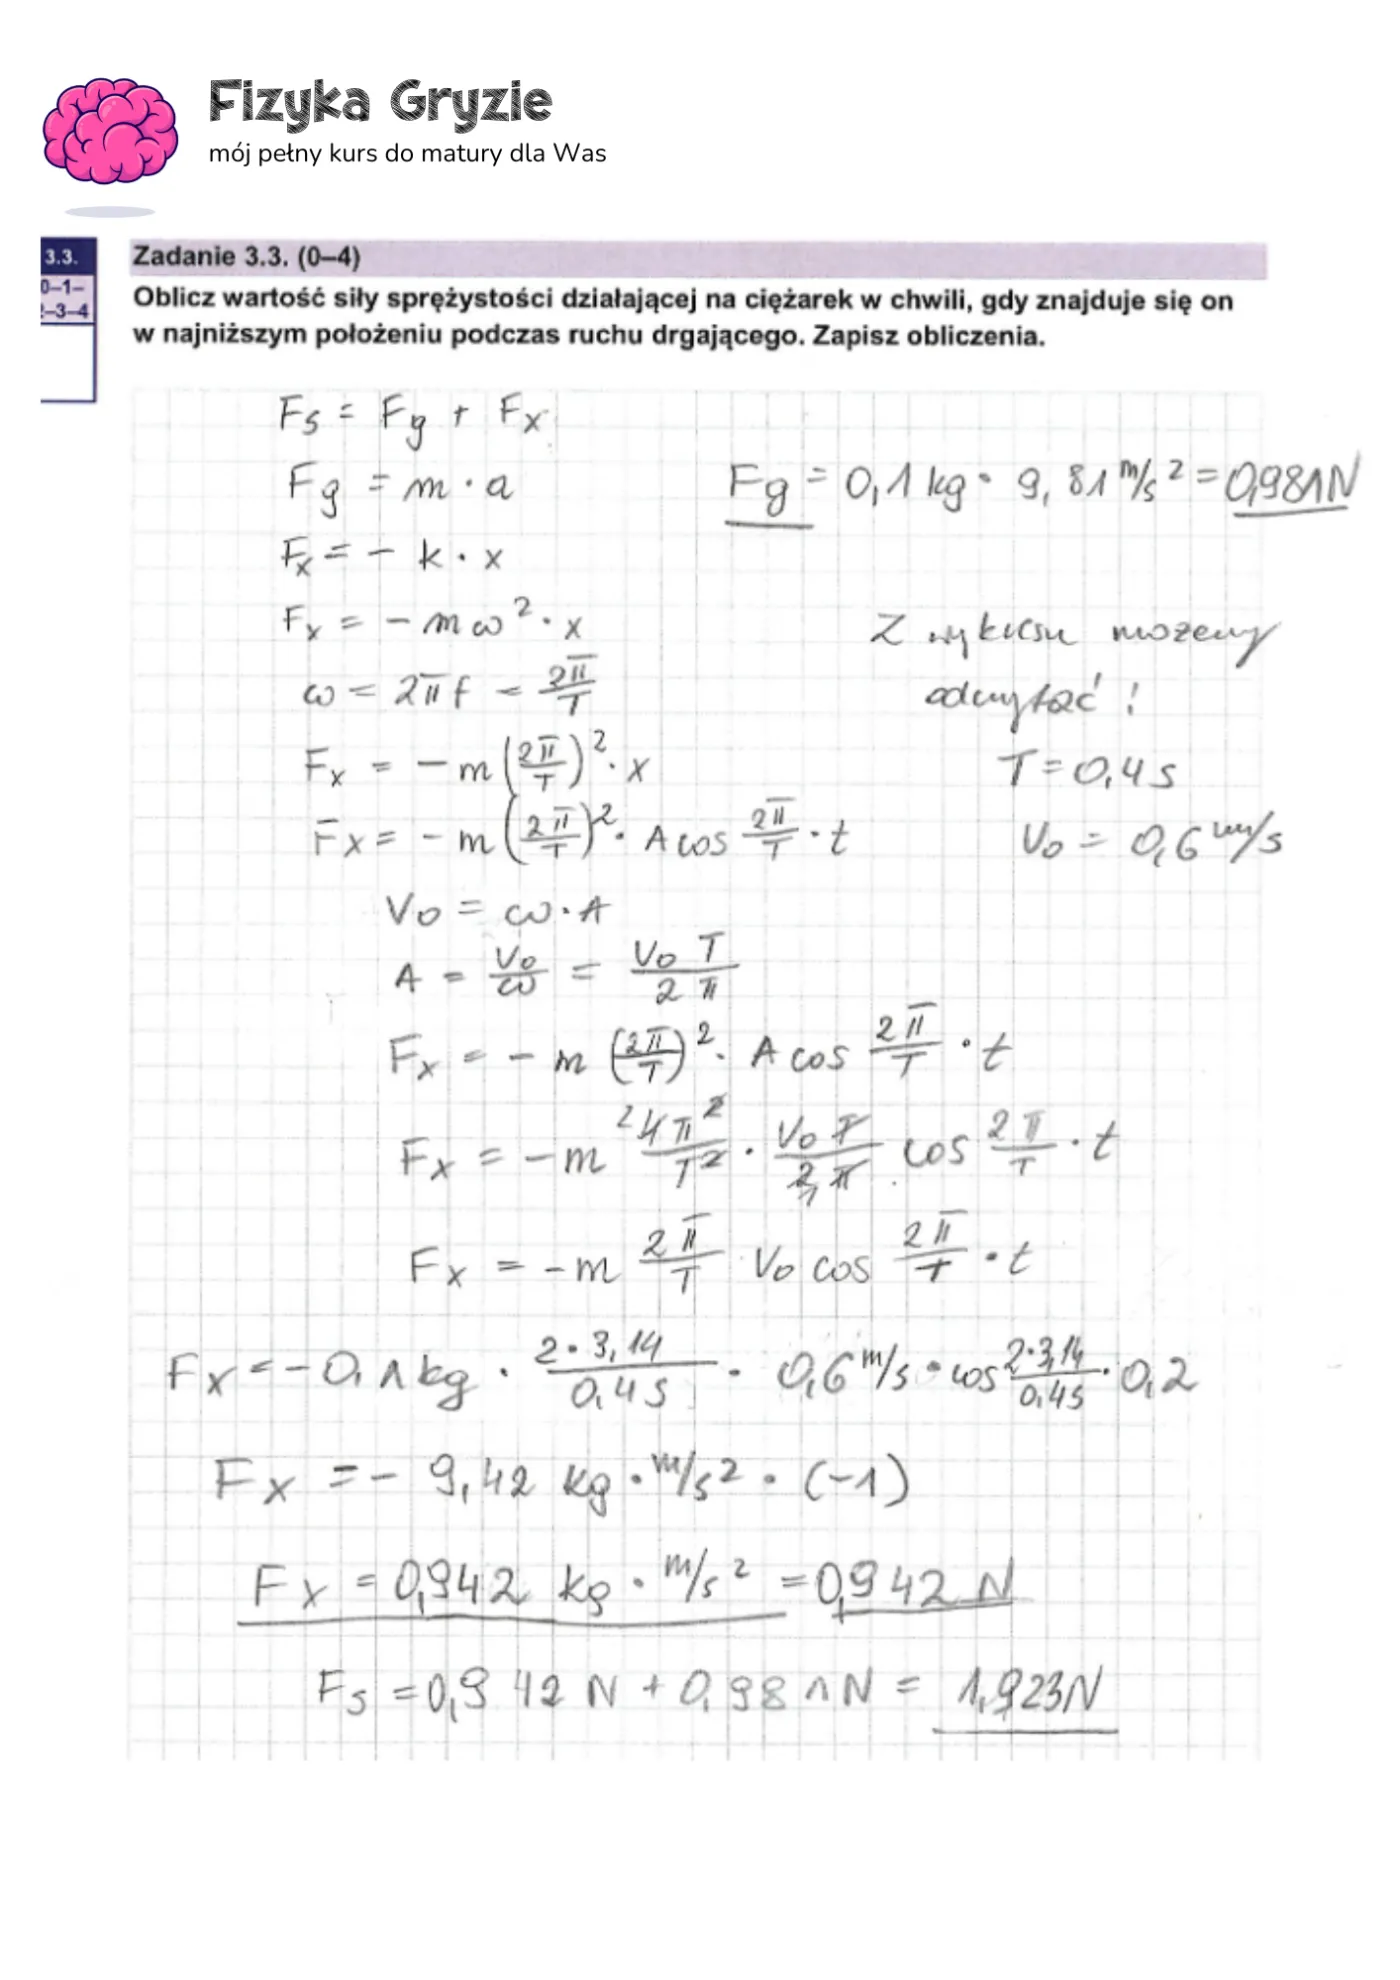 Fizyka Gryzie
mój pełny kurs do matury dla Was
3.3.
0–1–
2–3–4
Zadanie 3.3. (0–4)
Oblicz wartość siły sprężystości działającej na ciężarek w chwili, gdy znajduje się on
w najniższym położeniu podczas ruchu drgającego. Zapisz obliczenia.
Fs = Fg + Fx
Fg = m · a
Fg = 0,1 kg · 9,81 m/s² = 0,981N
Fx = - k · x
Fx = - mω² · x
Z wykresu możemy
odczytać!
ω = 2πf = 2π/T
Fx = - m (2π/T)² · x
T = 0,4 s
Fx = - m (2π/T)² · A cos 2π/T · t
V₀ = 0,6 m/s
V₀ = ω · A
A = V₀/ω = V₀ T/2 π
Fx = - m (2π/T)² · A cos 2π/T · t
Fx = - m ²4π²/T² · V₀ T/2₁ π cos 2π/T · t
Fx = - m 2π/T V₀ cos 2π/T · t
Fx = - 0,1 kg · 2·3,14/0,4 s · 0,6 m/s · cos 2·3,14/0,4s · 0,2
Fx = - 9,42 kg · m/s² · (-1)
Fx = 0,942 kg · m/s² = 0,942 N
Fs = 0,942 N + 0,981N = 1,923N